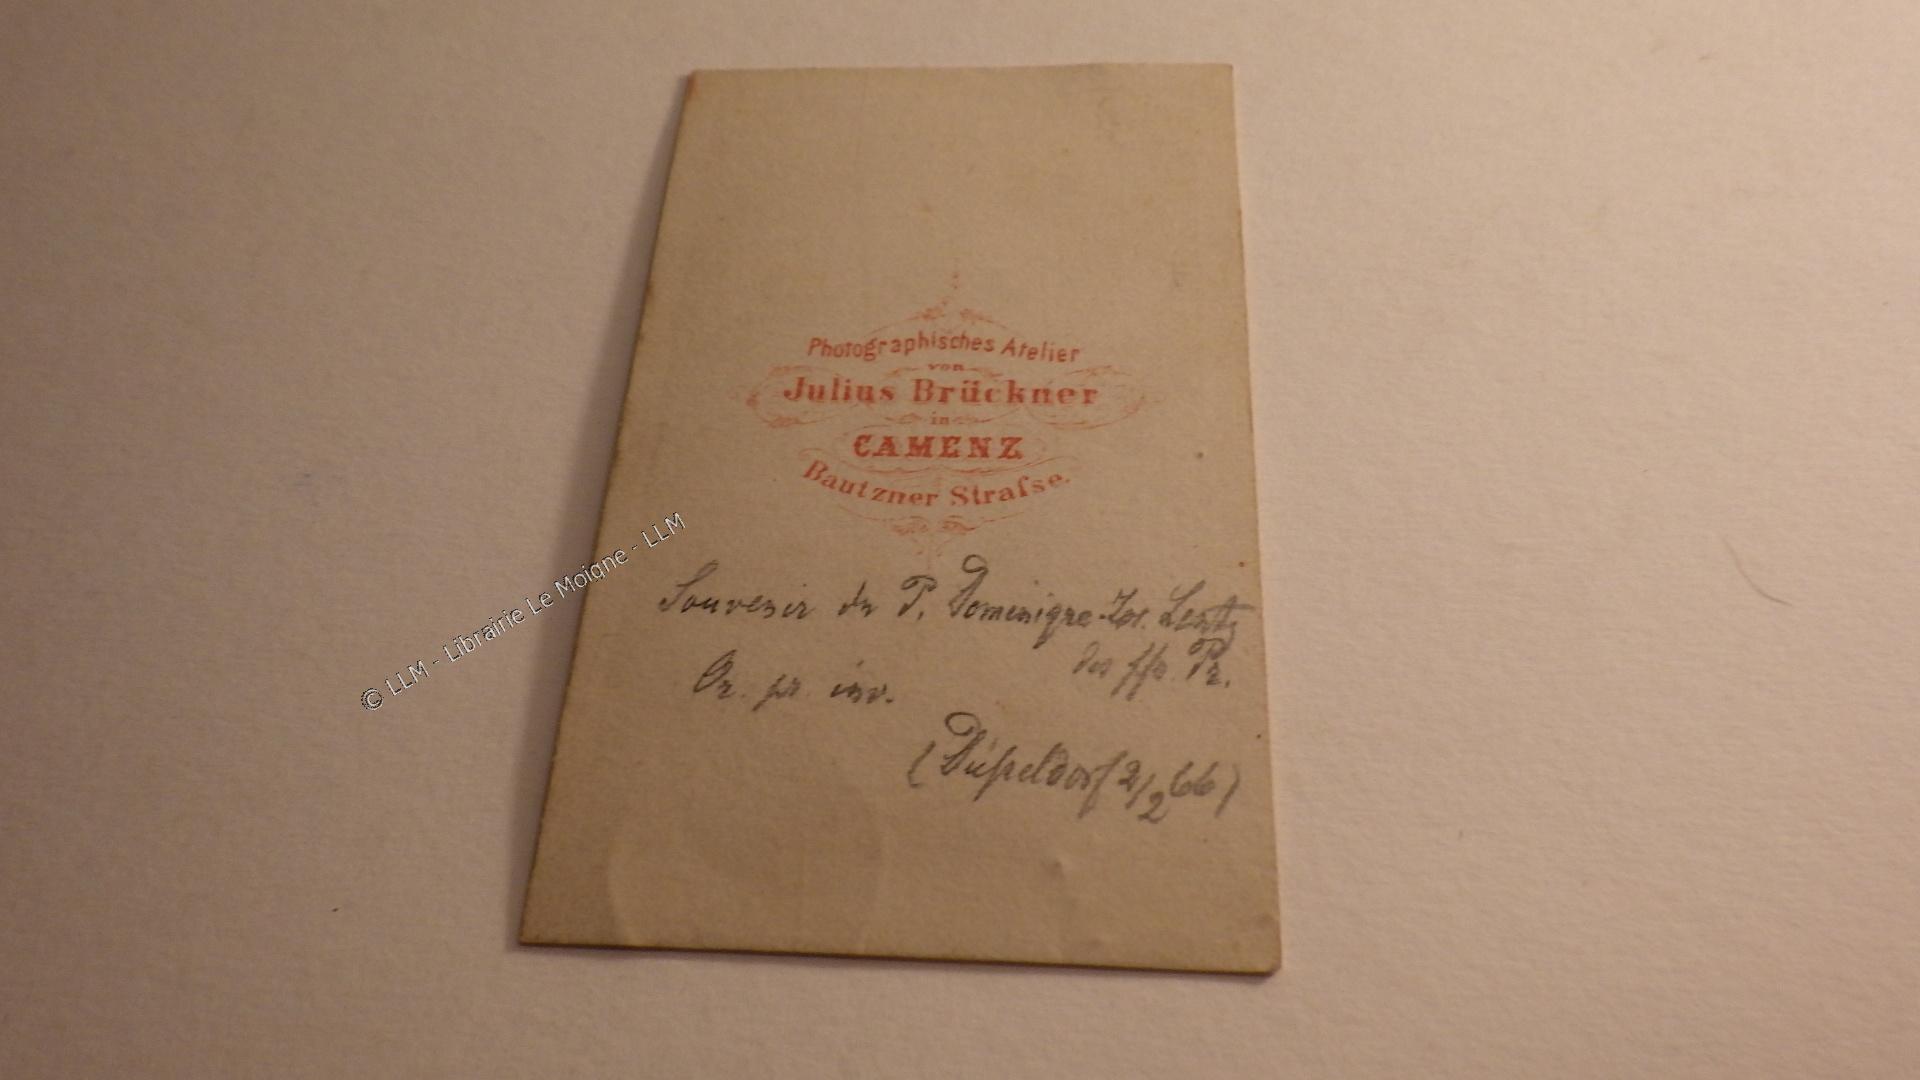 Photographisches Atelier
von
Julius Brückner
in
CAMENZ
Bautzner Straſse.
Souvenir du P. Dominique-Jos. Lentz
des ffr. Pr.
Or. pr. inv.
(Düſseldorf 2/2 66)
© LLM - Librairie Le Moigne - LLM